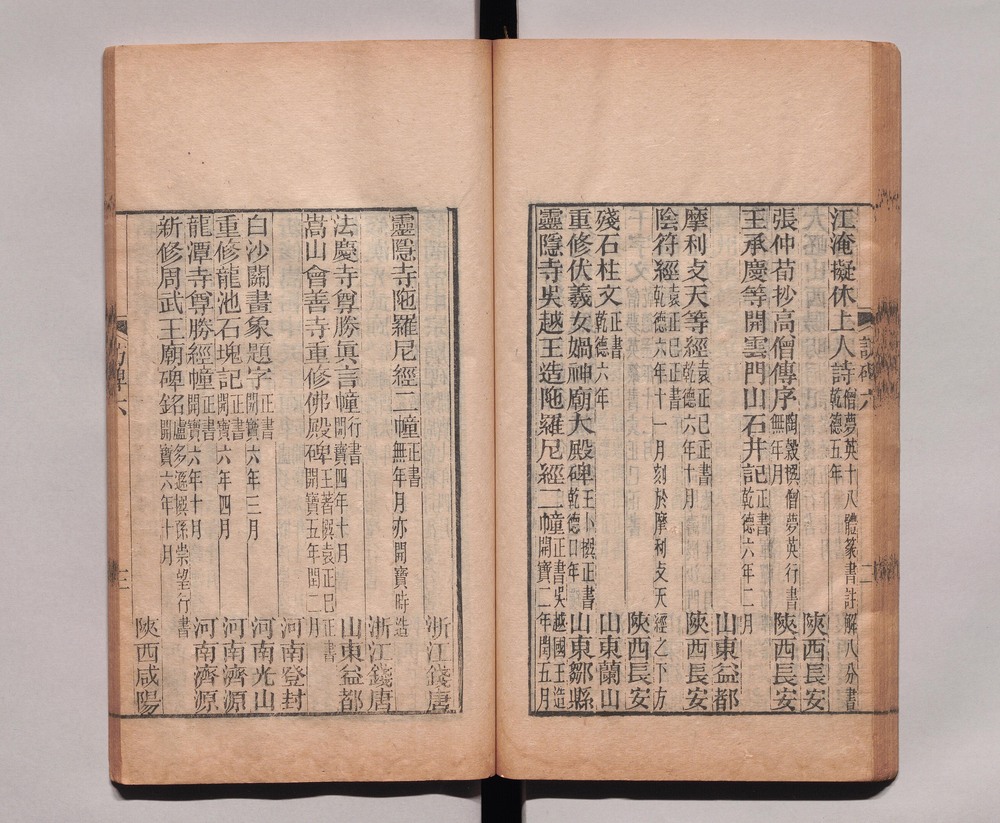 江淹擬休上人詩僧夢英十八體篆書註解八分書乾德五年
陝西長安
張仲荀抄高僧傳序陶穀撰僧夢英行書無年月
陝西長安
王承慶等開雲門山石井記正書乾德六年二月
山東益都
摩利攴天等經袁正己正書乾德六年十月
陝西長安
陰符經袁正巳正書乾德六年十一月刻於摩利攴天經之下方
陝西長安
殘石柱文正書乾德六年
山東蘭山
重修伏羲女媧神廟大殿碑王卜撰正書乾德口年
山東鄒縣
靈隱寺吳越王造陁羅尼經二幢正書吳越國王造開寶二年閏五月
訪碑六
二
浙江錢唐
靈隱寺陁羅尼經二幢正書無年月亦開寶時造
浙江錢唐
法慶寺尊勝眞言幢行書開寶四年十月
山東益都
嵩山會善寺重修佛殿碑王著撰袁正巳正書開寶五年閏二月
河南登封
白沙闢畫象題字正書開寶六年三月
河南光山
重修龍池石塊記正書開寶六年四月
河南濟源
龍潭寺尊勝經幢正書開寶六年十月
河南濟源
新修周武王廟碑銘盧多遜撰孫崇望行書開寶六年十月
陝西咸陽
訪碑六
三